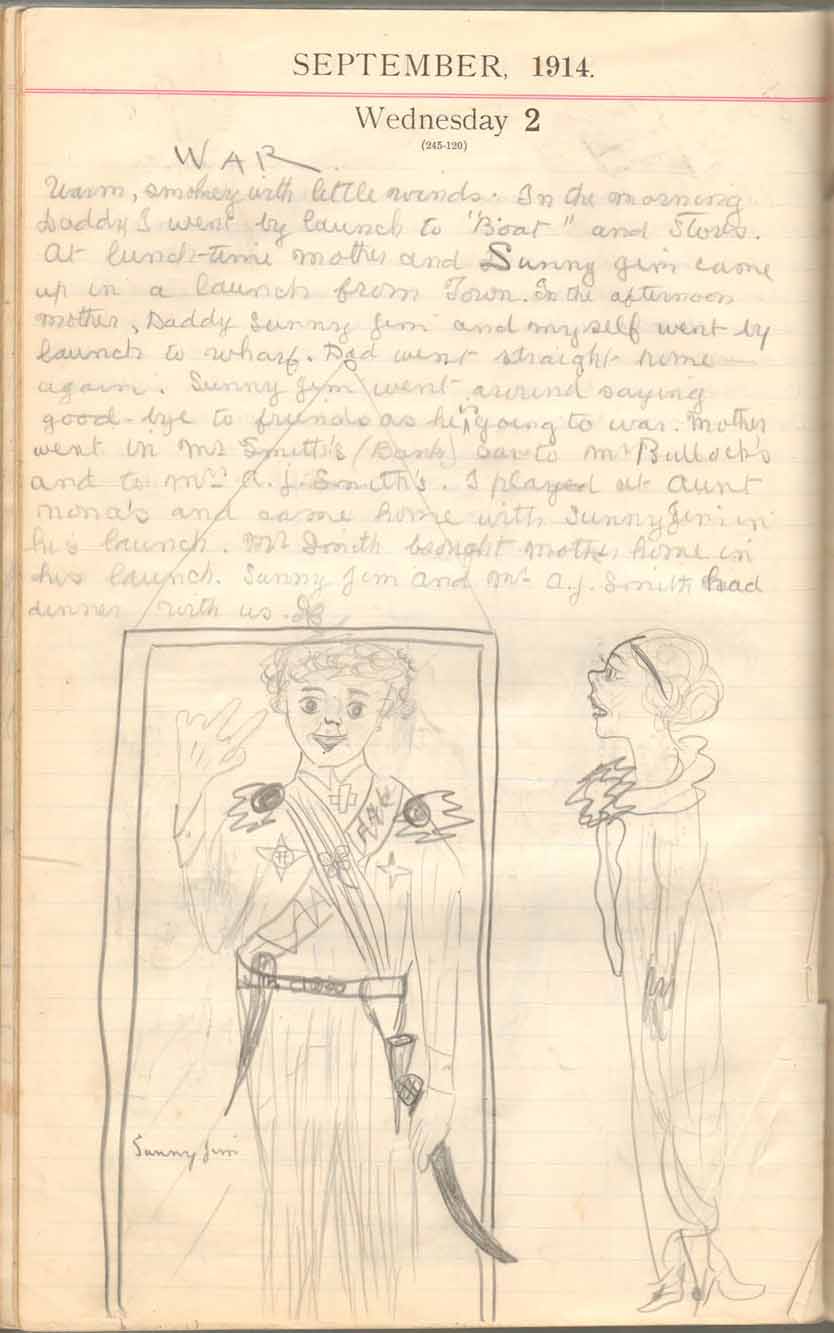 SEPTEMBER, 1914.
Wednesday 2
(245-120)
WAR.
Warm, smokey with little winds. In the morning
Daddy I went by launch to "Boat" and Stores.
At lunch-time mother and Sunny Jim came
up in a launch from Town. In the afternoon
mother, Daddy Sunny Jim and myself went by
launch to wharf. Dad went straight home
again. Sunny Jim went around saying
good-bye to friends as he is going to war. Mother
went in Mr Smith's (Bank) car to Mr Bullock's
and to Mrs A. J. Smith's. I played at Aunt
Nona's and came home with Sunny Jim in
his launch. Mr Smith brought mother home in
his launch. Sunny Jim and Mr A.J. Smith had
dinner with us.
Sunny Jim